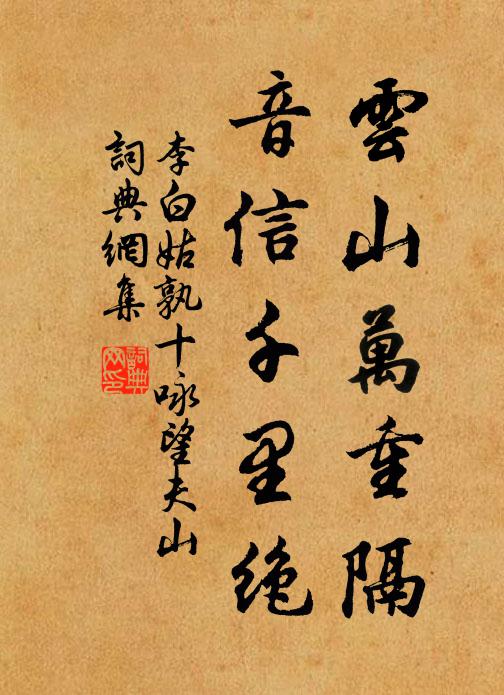 雲山萬重隔
音信千里絶
李白姑孰十咏望夫山
詞典網集
詞典网印